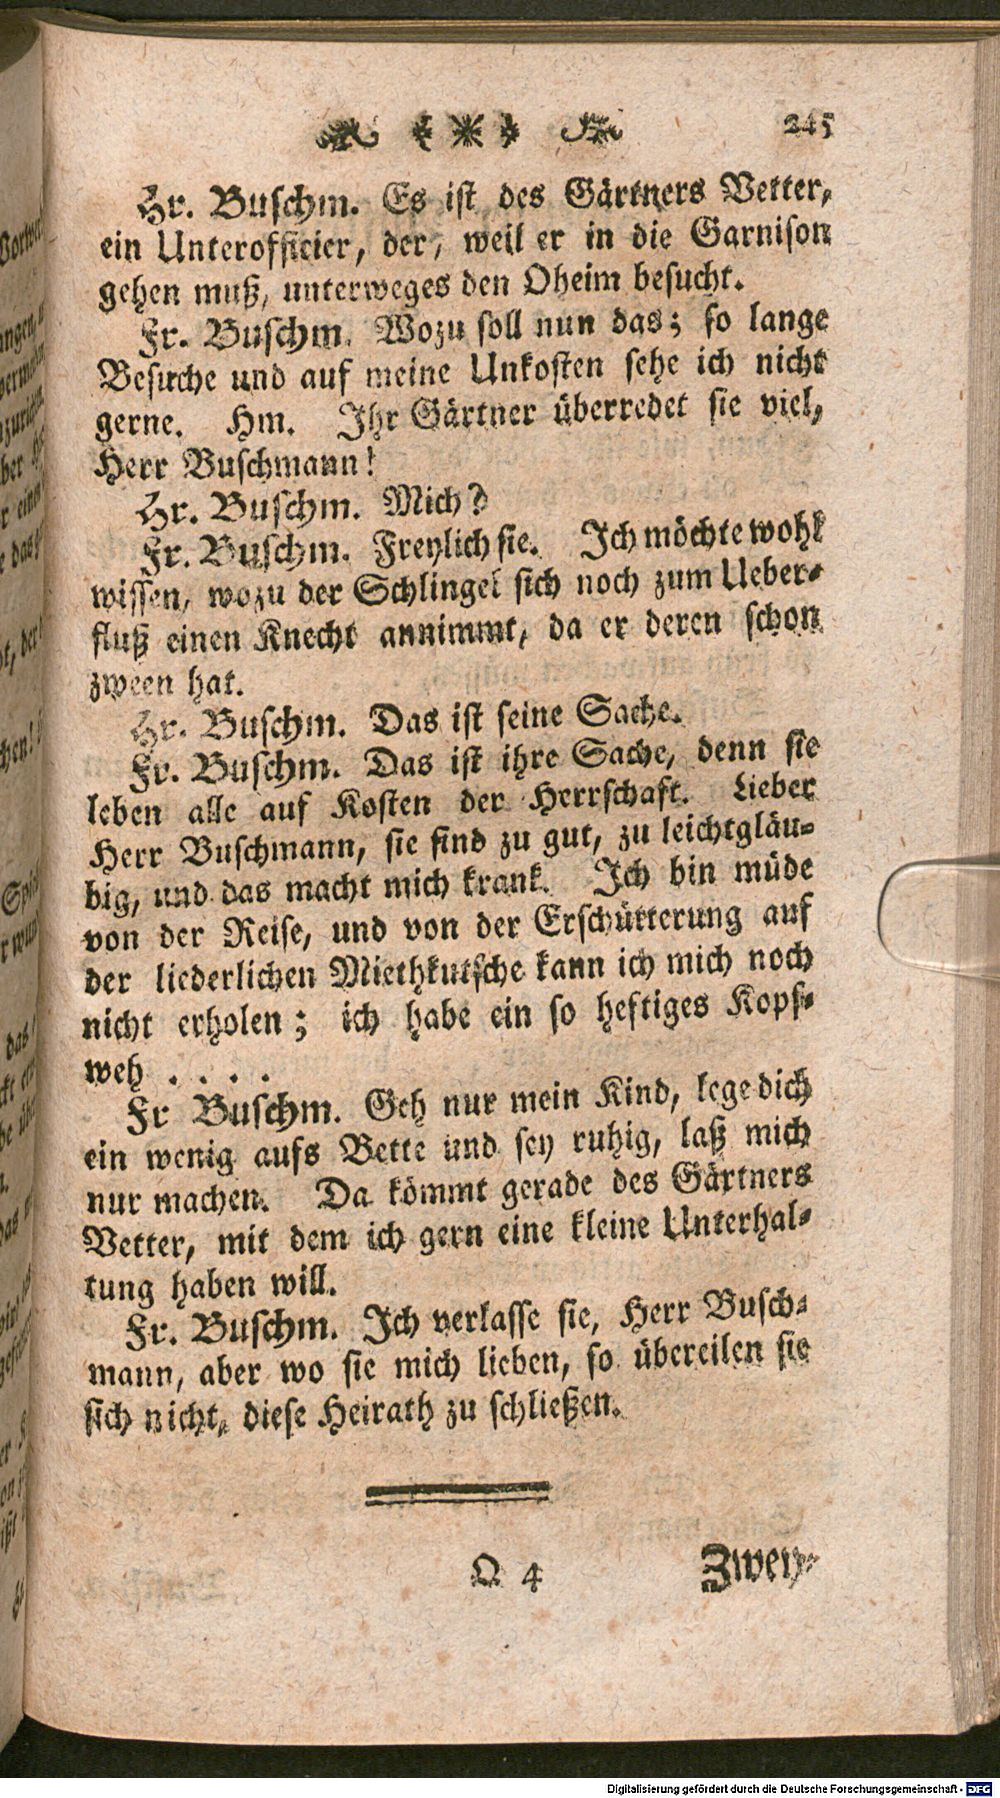 245
Hr. Buschm. Es ist des Gärtners Vetter,
ein Unterofficier, der, weil er in die Garnison
gehen muß, unterweges den Oheim besucht.
Fr. Buschm. Wozu soll nun das; so lange
Besuche und auf meine Unkosten sehe ich nicht
gerne. Hm. Ihr Gärtner überredet sie viel,
Herr Buschmann!
Hr. Buschm. Mich?
Fr. Buschm. Freylich sie. Ich möchte wohl
wissen, wozu der Schlingel sich noch zum Ueber-
fluß einen Knecht annimmt, da er deren schon
zween hat.
Hr. Buschm. Das ist seine Sache.
Fr. Buschm. Das ist ihre Sache, denn sie
leben alle auf Kosten der Herrschaft. Lieber
Herr Buschmann, sie sind zu gut, zu leichtgläu-
big, und das macht mich krank. Ich bin müde
von der Reise, und von der Erschütterung auf
der liederlichen Miethkutsche kann ich mich noch
nicht erholen; ich habe ein so heftiges Kopf-
weh . . . .
Fr Buschm. Geh nur mein Kind, lege dich
ein wenig aufs Bette und sey ruhig, laß mich
nur machen. Da kömmt gerade des Gärtners
Vetter, mit dem ich gern eine kleine Unterhal-
tung haben will.
Fr. Buschm. Ich verlasse sie, Herr Busch-
mann, aber wo sie mich lieben, so übereilen sie
sich nicht, diese Heirath zu schließen.
Q 4 Zwey-
Digitalisierung gefördert durch die Deutsche Forschungsgemeinschaft - DFG